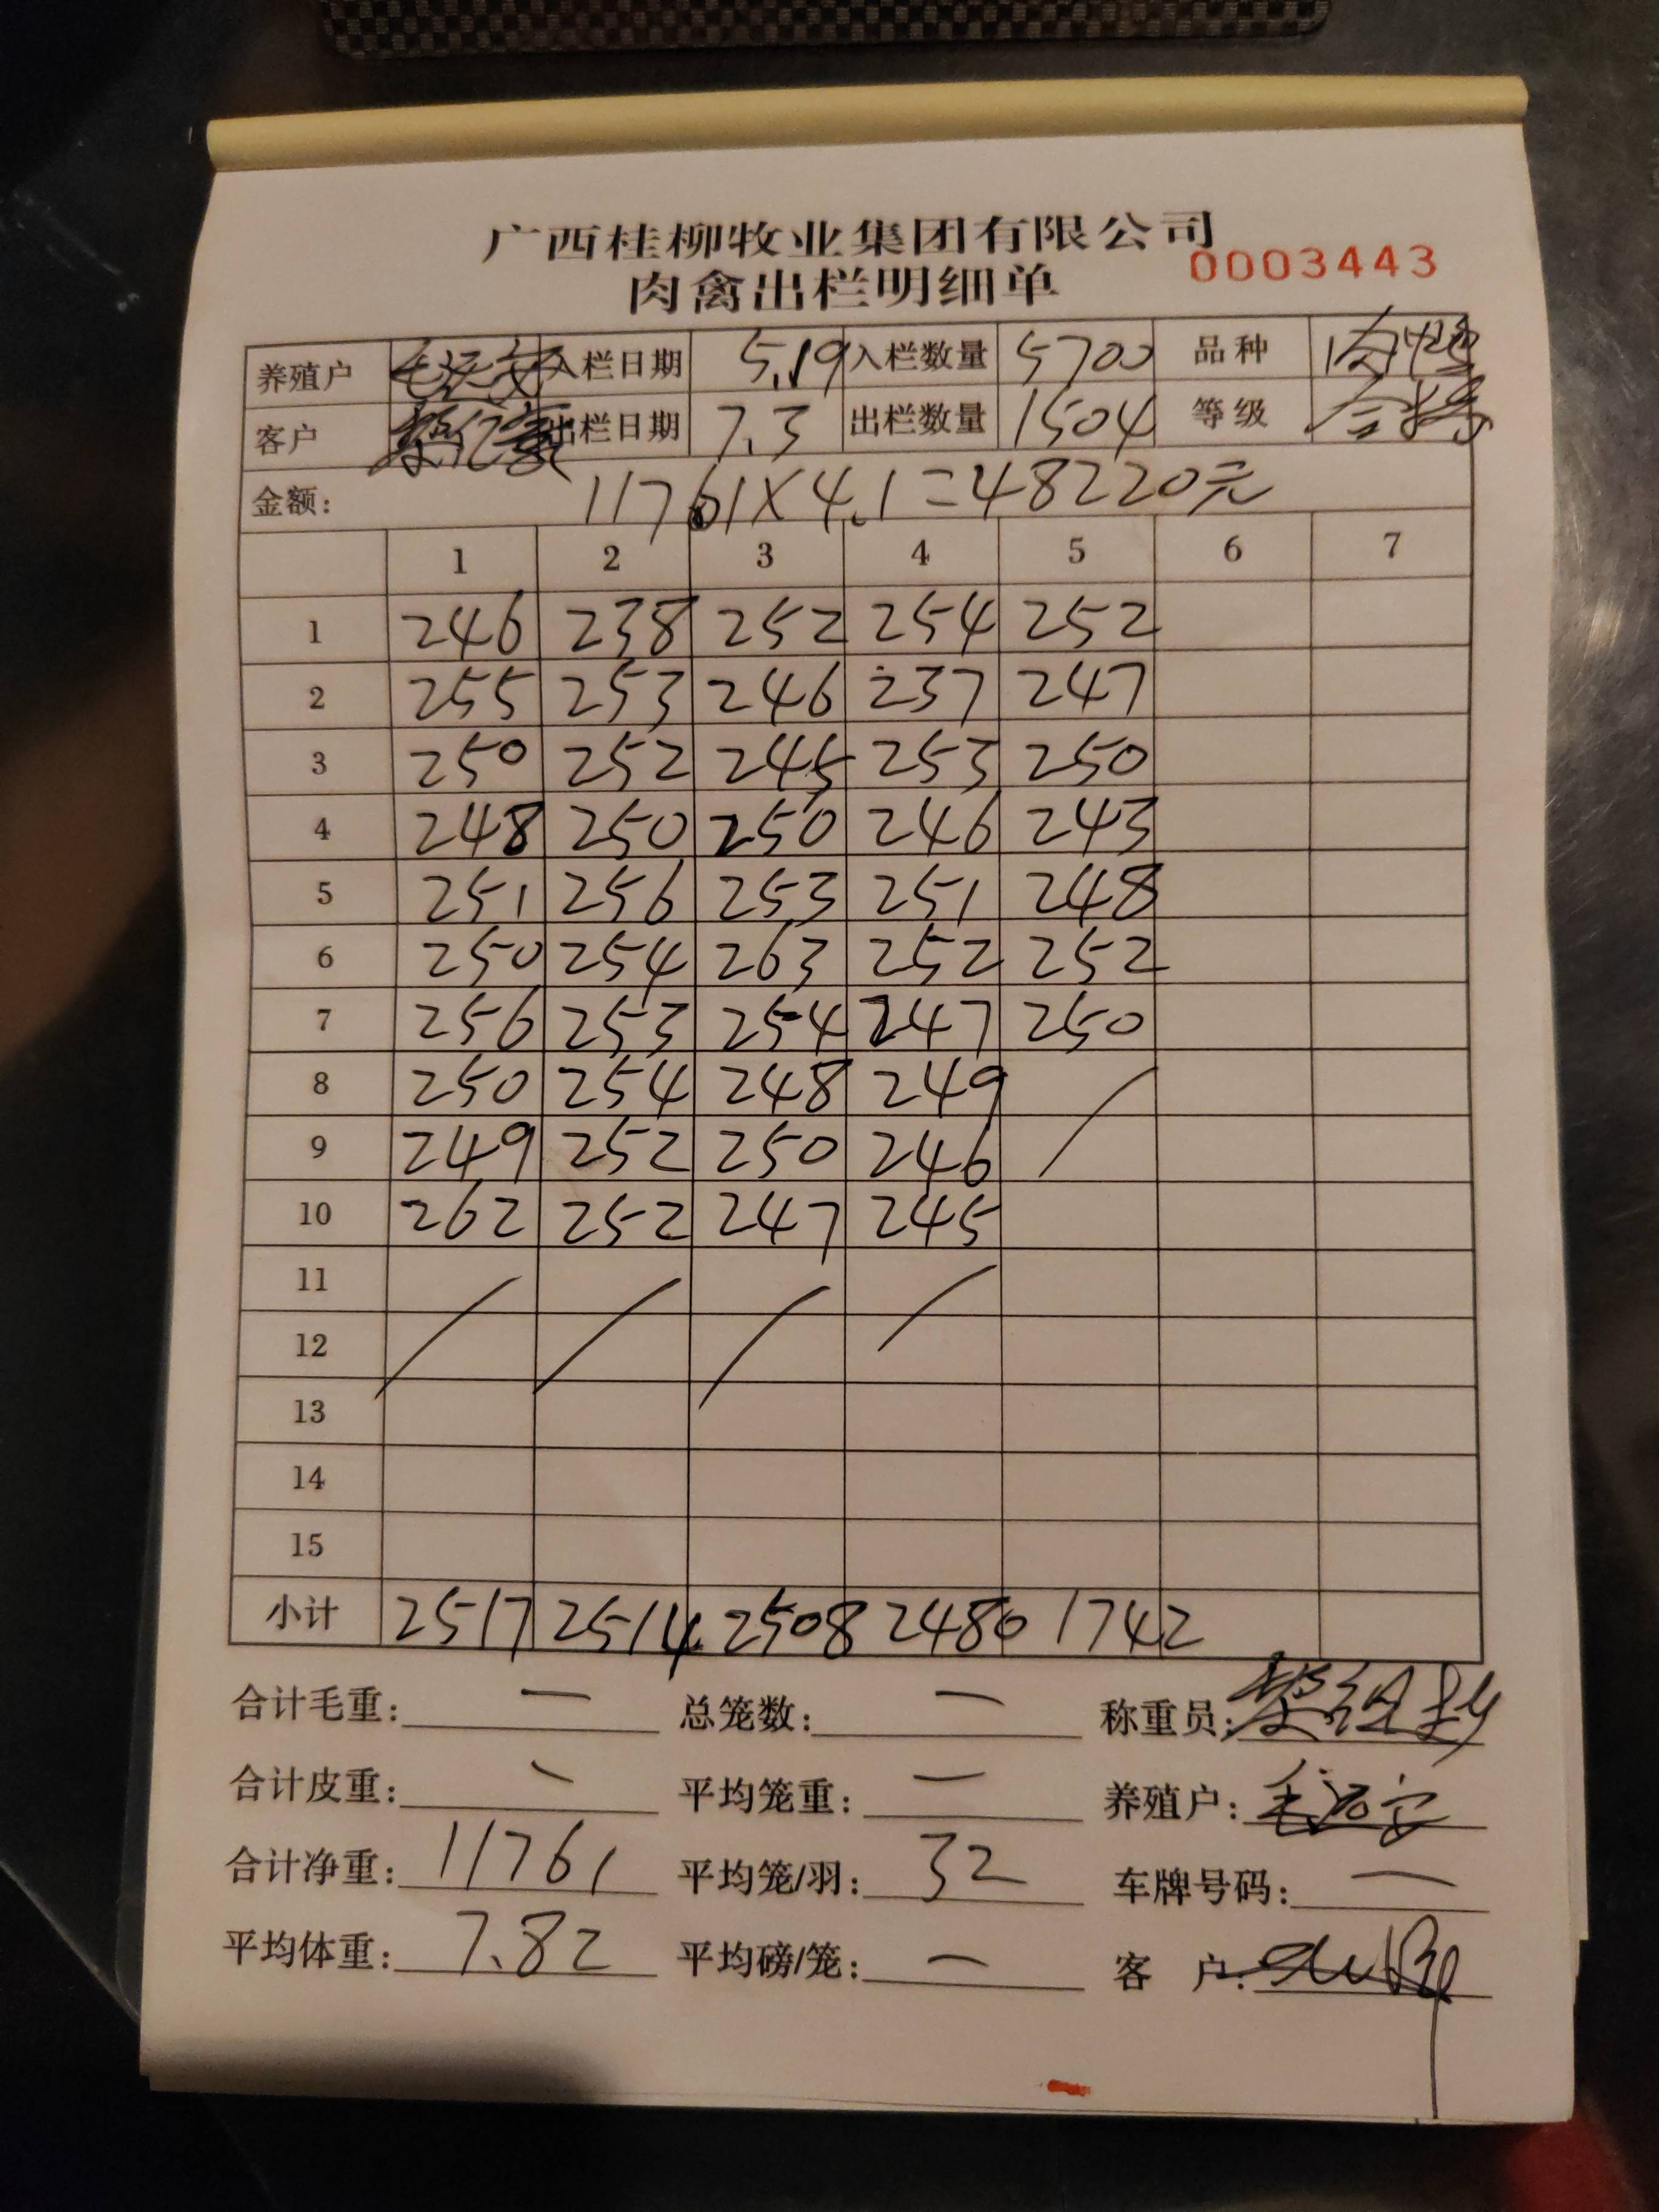 广西桂柳牧业集团有限公司
肉禽出栏明细单 0003443
养殖户 入栏日期 5.19 入栏数量 5700 品种 肉鸭
客户 出栏日期 7.3 出栏数量 1504 等级
金额: 11761×4.1=48220元
1 2 3 4 5 6 7
1 246 238 252 254 252
2 255 253 246 237 247
3 250 252 245 253 250
4 248 250 250 246 243
5 251 256 253 251 248
6 250 254 263 252 252
7 256 253 254 247 250
8 250 254 248 249
9 249 252 250 246
10 262 252 247 245
11
12
13
14
15
小计 2517 2514 2508 2480 1742
合计毛重: — 总笼数: — 称重员:
合计皮重: — 平均笼重: — 养殖户:
合计净重: 11761 平均笼/羽: 32 车牌号码: —
平均体重: 7.82 平均磅/笼: — 客户: